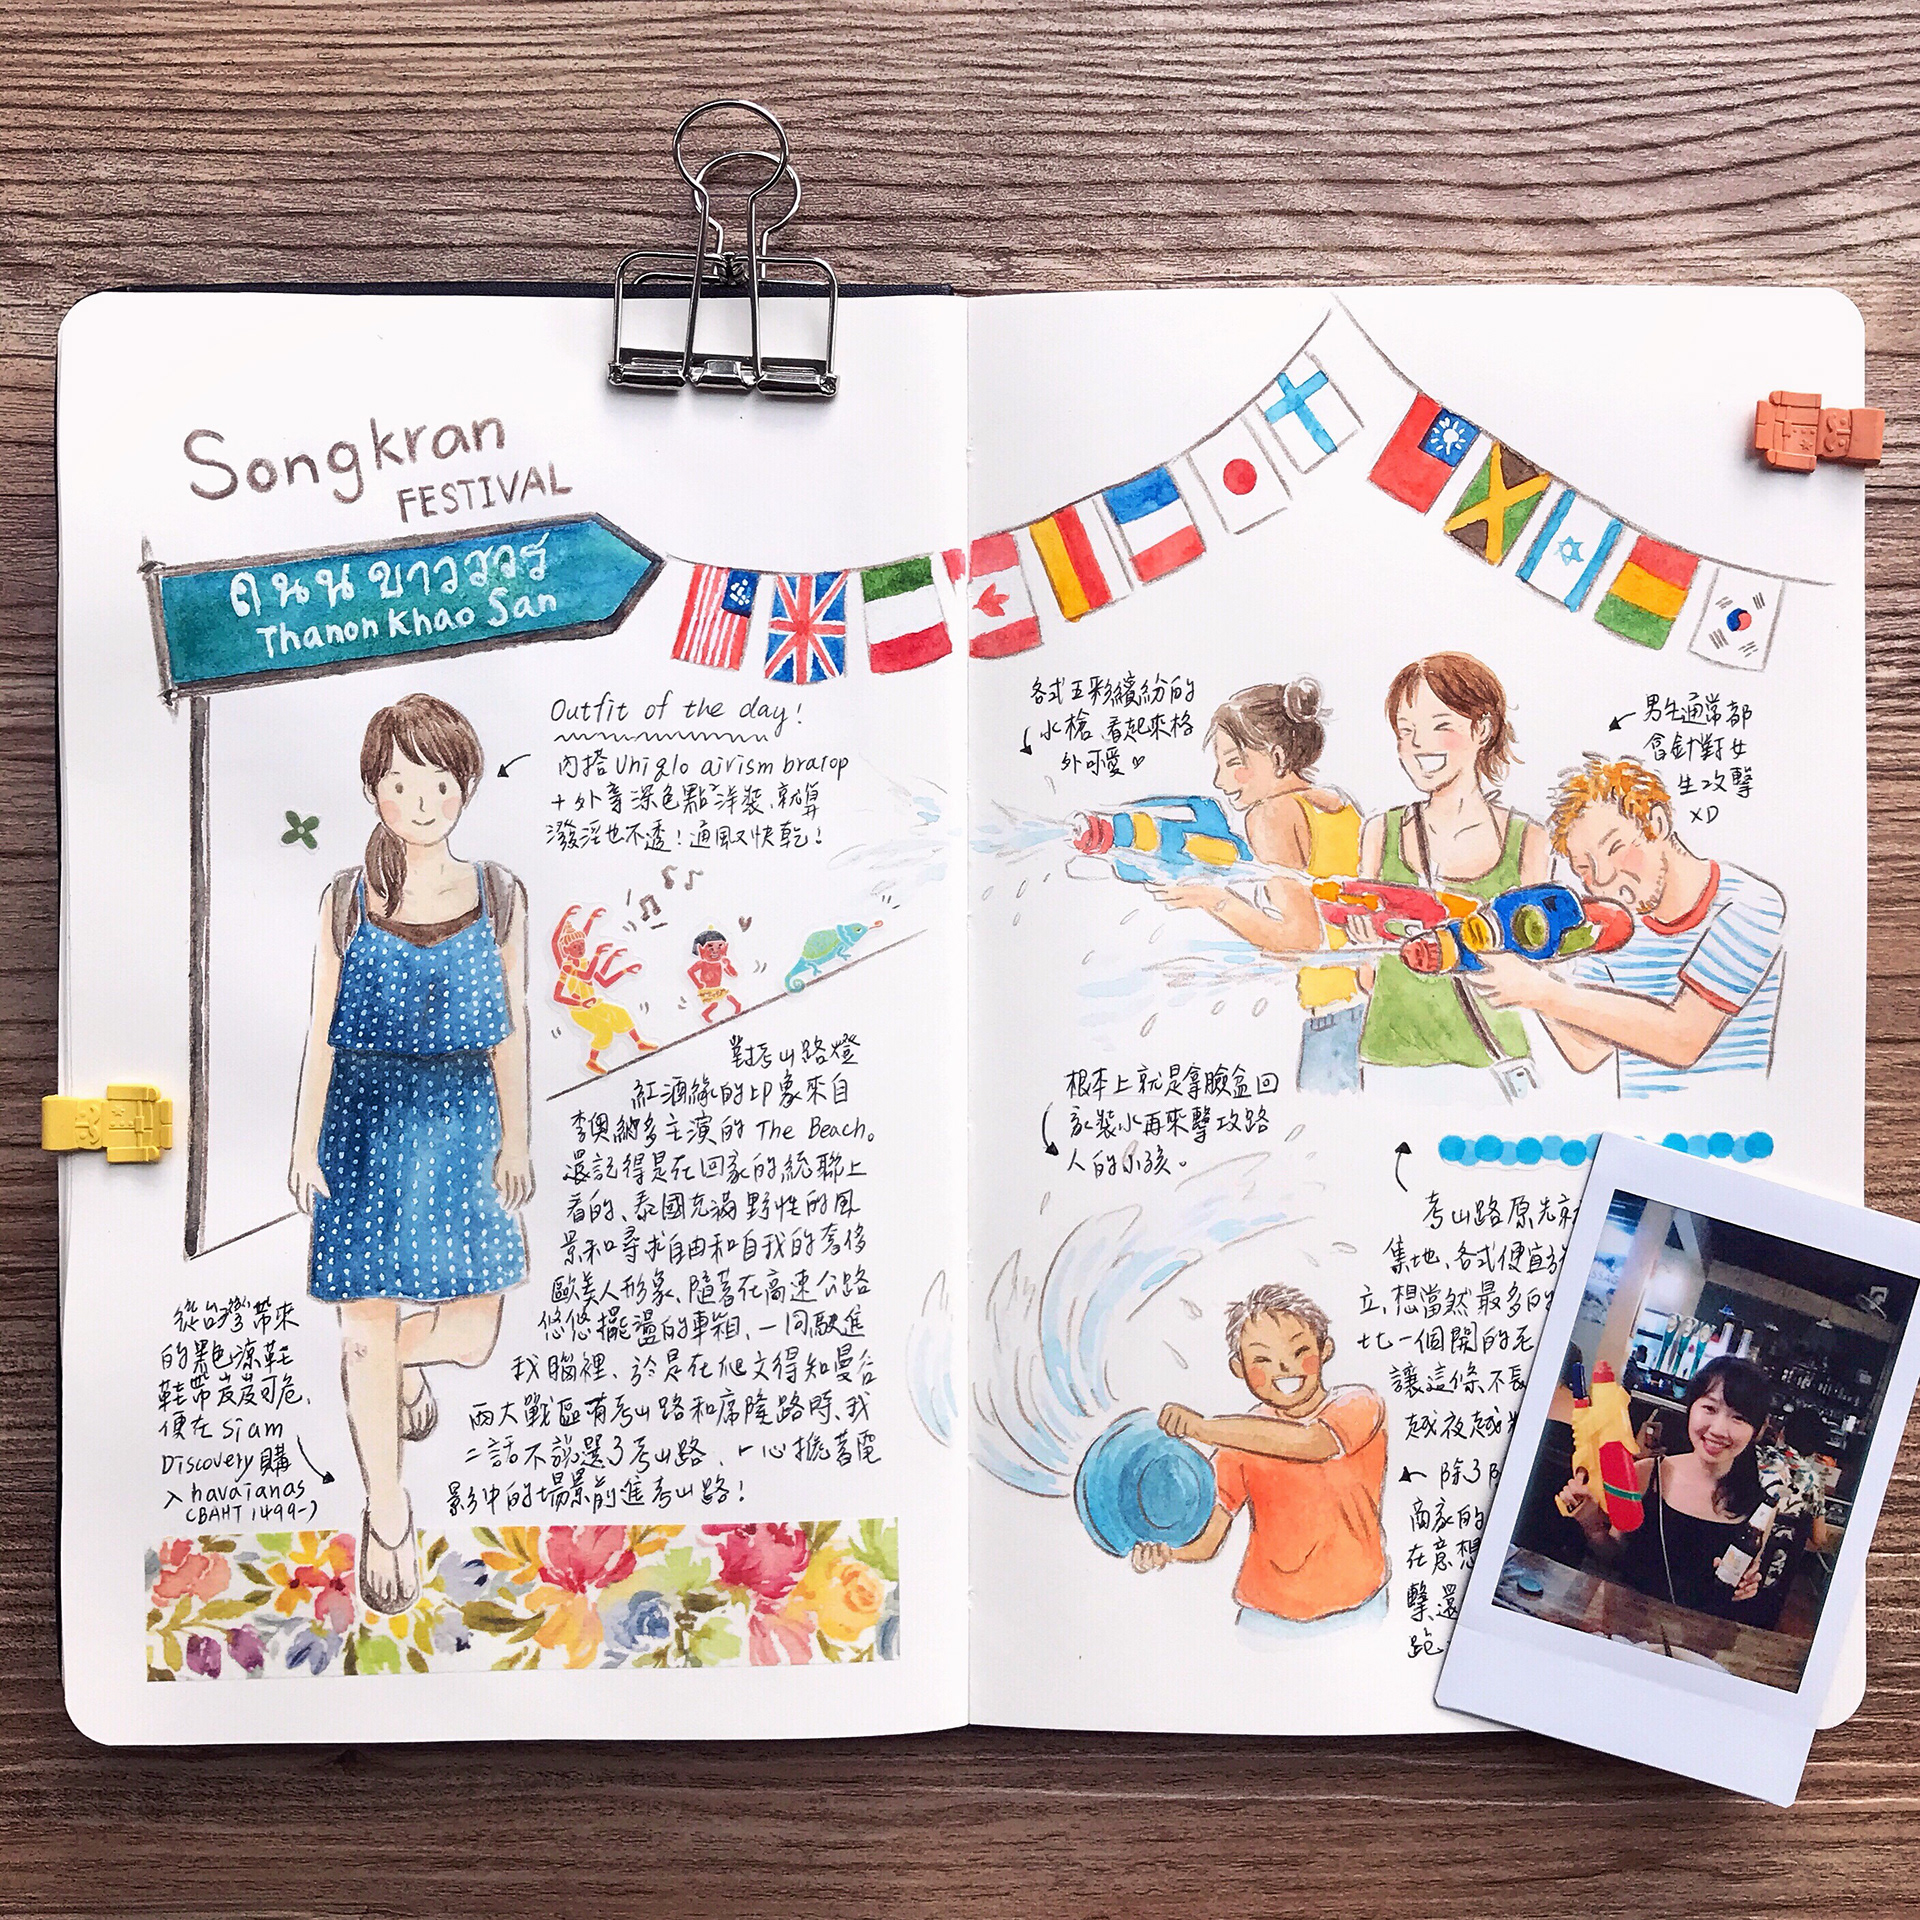 Songkran
FESTIVAL
ถนนข้าวสาร
Thanon Khao San
Outfit of the day!
內搭Uniglo airism bratop
+外章深色點點洋裝、就算
潑溼也不透!通風又快乾!
對考山路燈
紅酒綠的印象來自
李奧納多主演的The Beach。
還記得是在回家的統聯上
看的、泰國充滿野性的風
景和尋求自由和自我的奢侈
歐美人形象、隨著在高速公路
悠悠擺盪的車箱、一同駛進
我腦裡、於是在爬文得知曼谷
兩大戰區有考山路和席隆路時、我
二話不說選了考山路、一心擔著電
影中的場景前進考山路!
從台灣帶來
的黑色涼鞋
鞋帶岌岌可危、
便在Siam
Discovery購
入havaianas
(BAHT 1499-)
各式五彩繽紛的
水槍、看起來格
外可愛♡
男生通常都
會針對女
生攻擊
XD
根本上就是拿臉盆回
家裝水再來擊攻路
人的小孩。
考山路原先就
集地、各式便宜
立、想當然最多的
比一個開的
讓這條不長
越夜越
除了
商家的
在意想
擊、還
跑